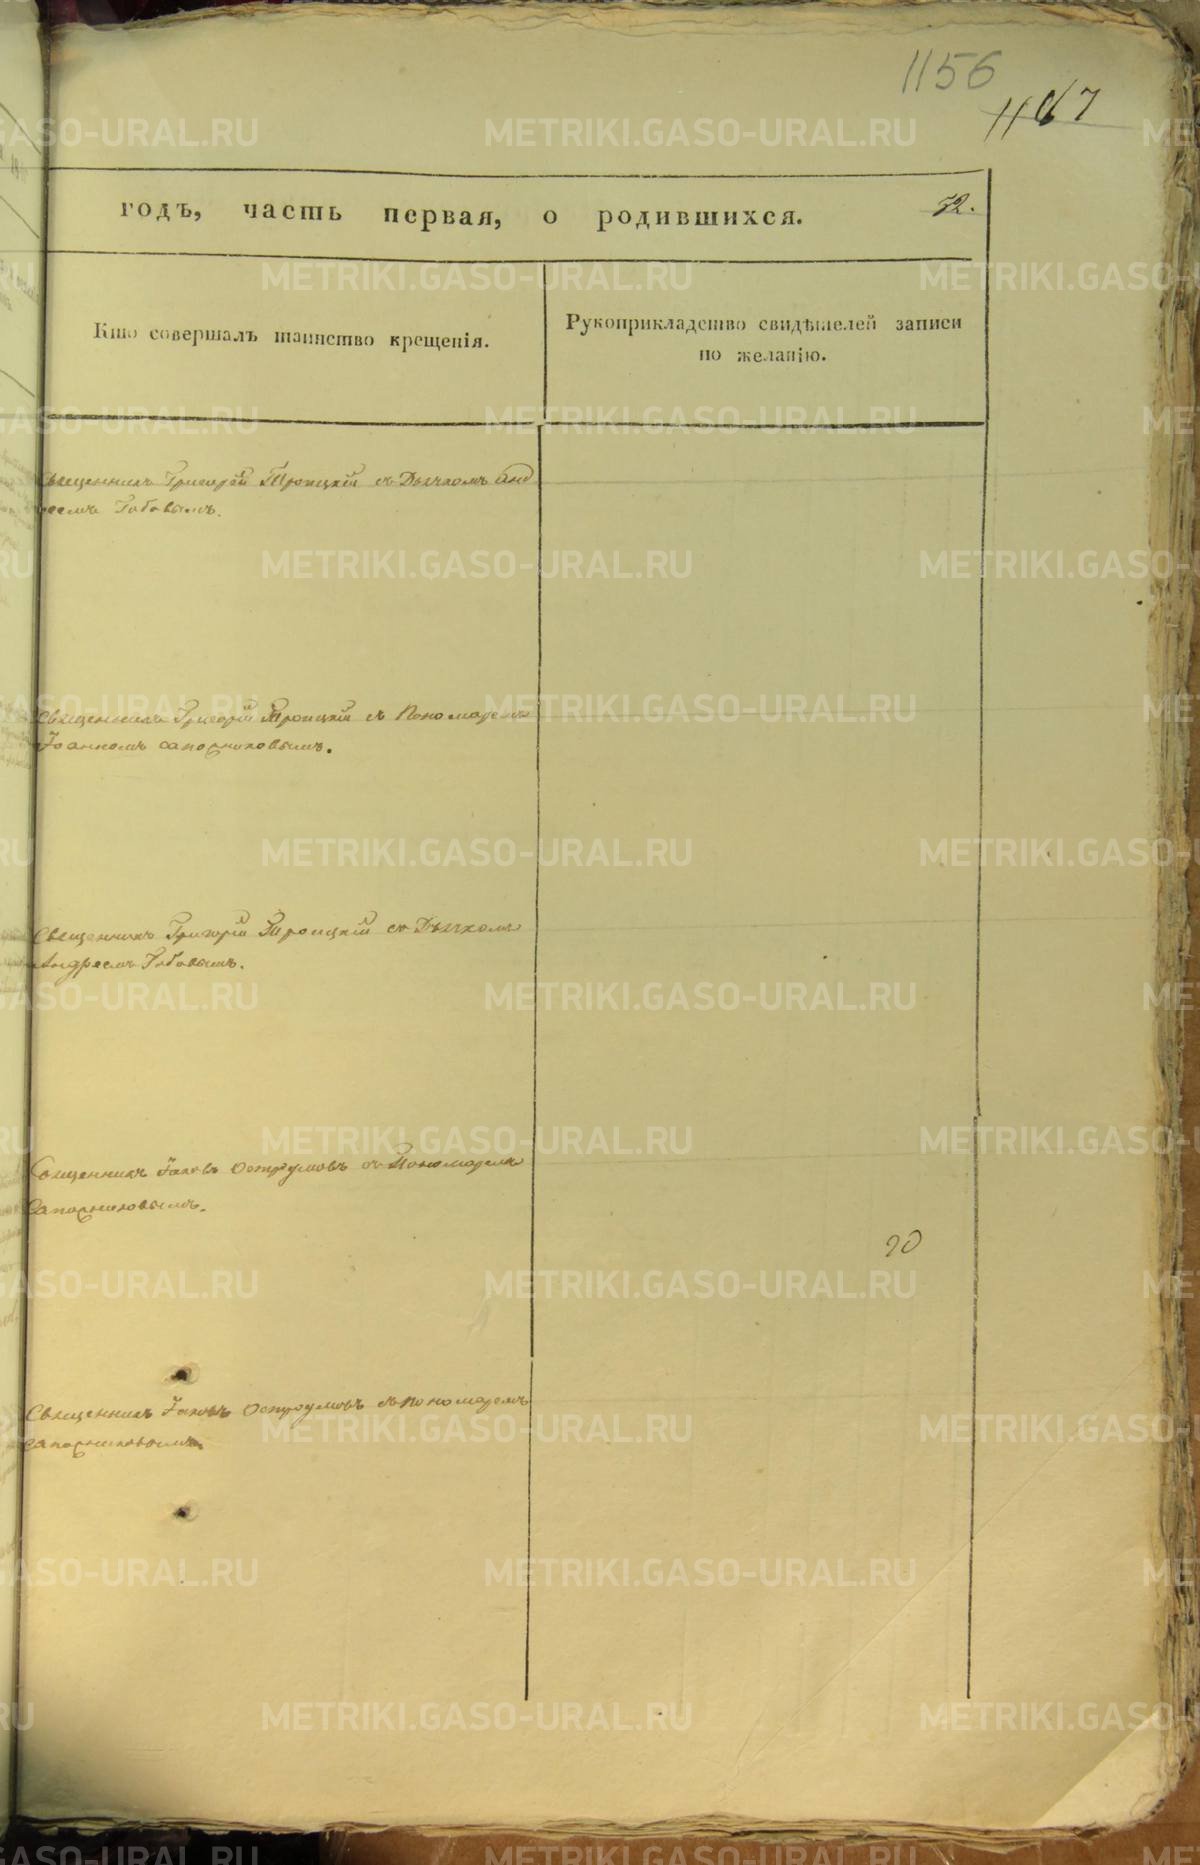 1156
1167
годъ, часть первая, о родившихся.
52.
Кто совершалъ таинство крещенія.
Рукоприкладство свидѣтелей записи
по желанію.
Священникъ Григорій Троицкій съ Дьячкомъ Анд
реемъ Габовымъ.
Священникъ Григорій Троицкій съ Пономаремъ
Іоанномъ Сапожниковымъ.
Священникъ Григорій Троицкій съ Дьячкомъ
Андреемъ Габовымъ.
Священникъ Іаковъ Остроумовъ съ Пономаремъ
Сапожниковымъ.
20
Священникъ Іаковъ Остроумовъ съ пономаремъ
Сапожниковымъ.
METRIKI.GASO-URAL.RU